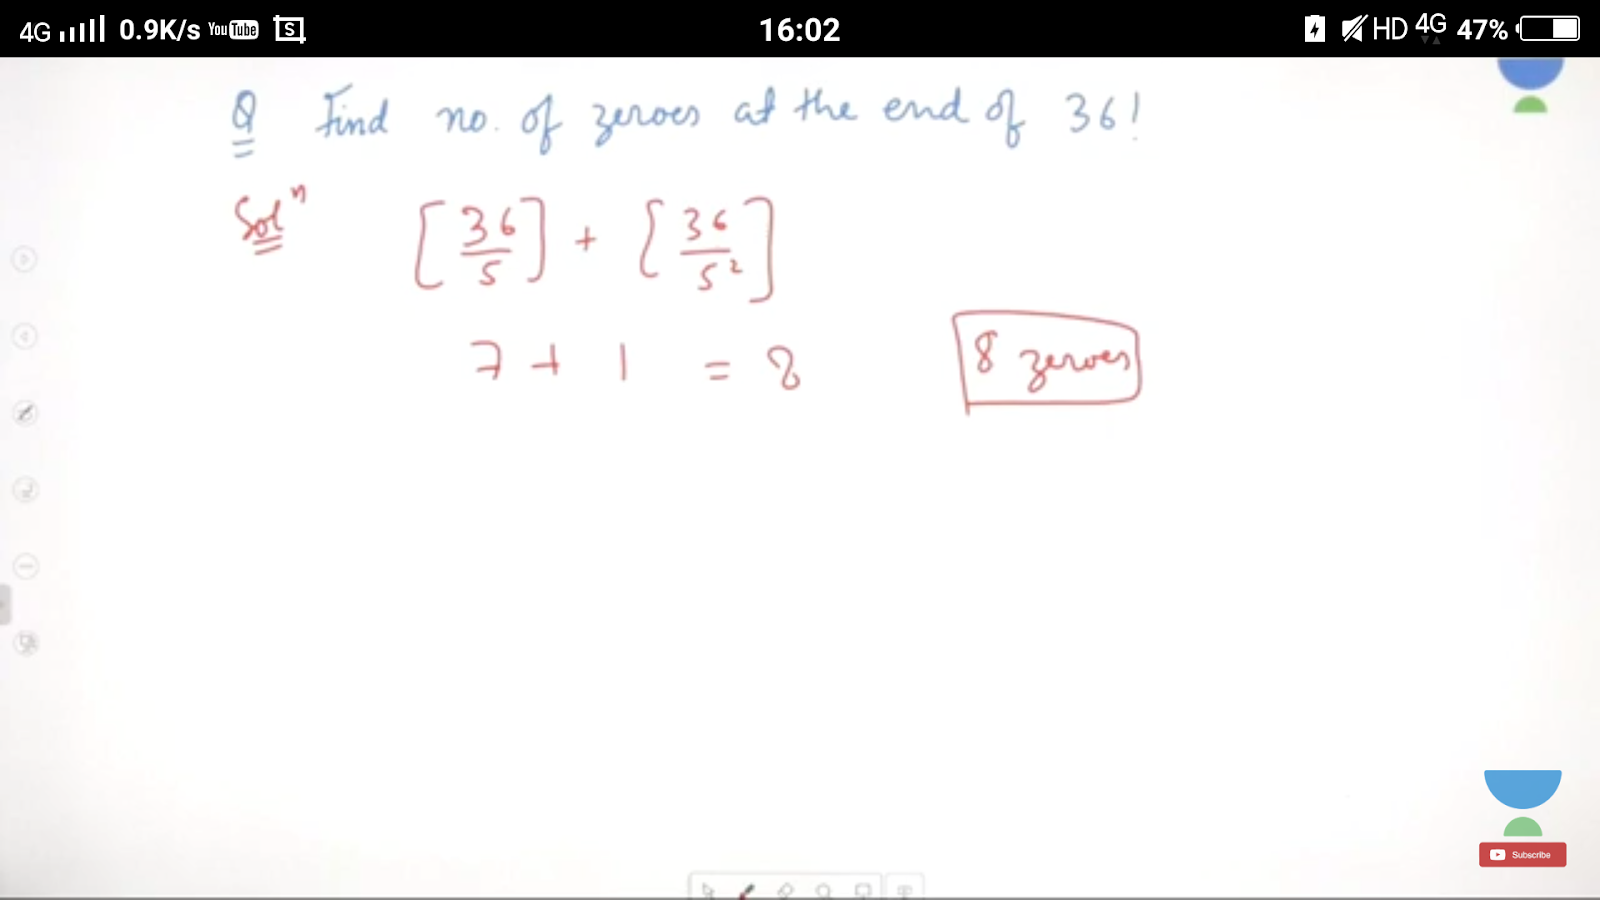 4G 0.9K/s YouTube S 16:02 HD 4G 47%
Q Find no. of zeroes at the end of 36!
Solⁿ [36/5] + [36/5²]
7 + 1 = 8
8 zeroes
Subscribe